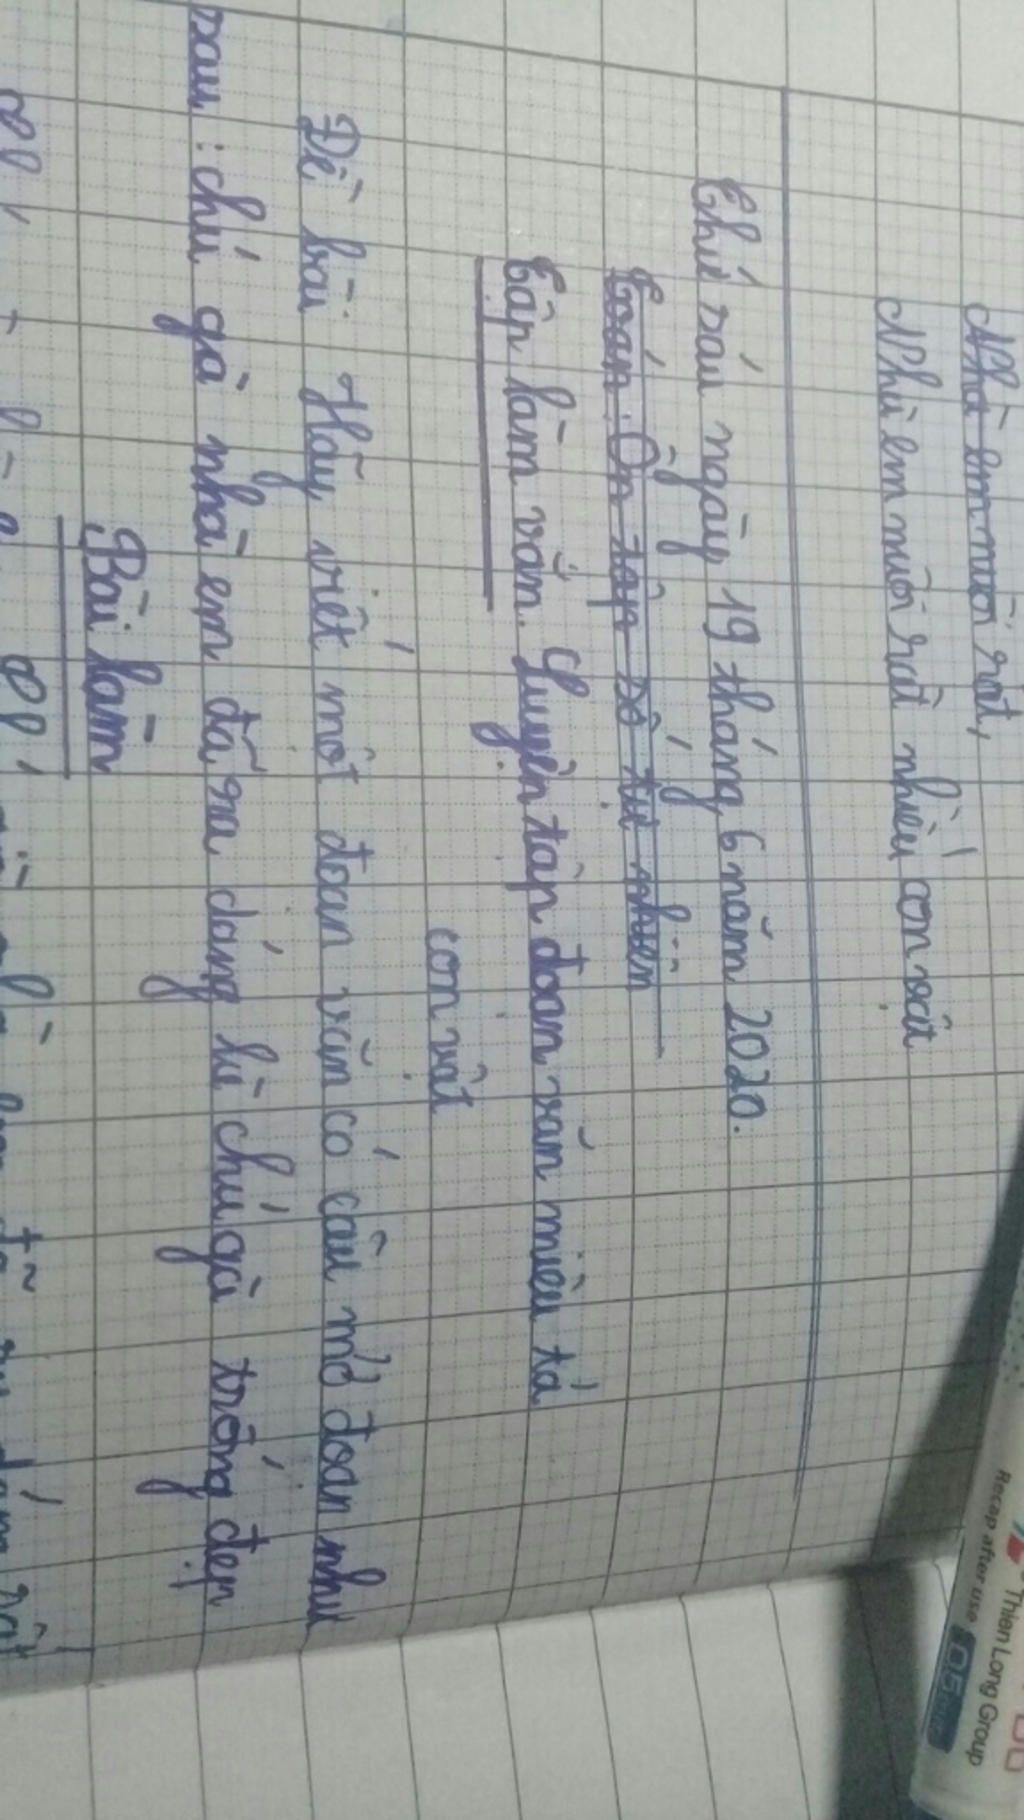 Nhà em nuôi rất,
Nhà em nuôi rất nhiều con vật
Thứ sáu ngày 19 tháng 6 năm 2020.
Toán Ôn tập số tự nhiên
Tập làm văn. Luyện tập đoạn văn miêu tả
con vật
Đề bài: Hãy viết một đoạn văn có câu mở đoạn như
sau: chú gà nhà em đã ra dáng là chú gà trống đẹp
Bài làm
Thien Long Group
Recap after use